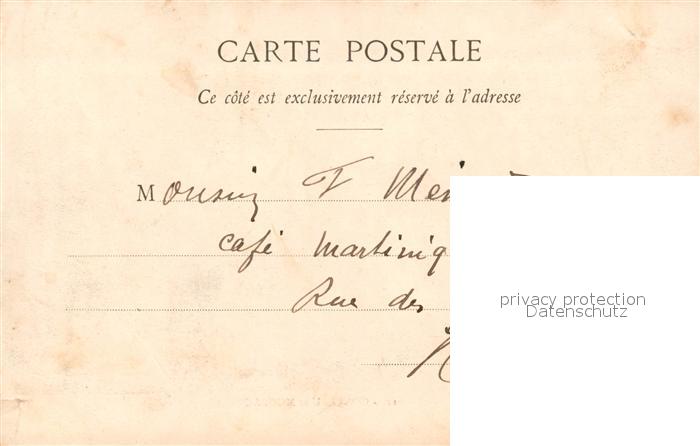 CARTE POSTALE
Ce côté est exclusivement réservé à l'adresse
Monsieur F
café Martiniq
Rue des
privacy protection
Datenschutz